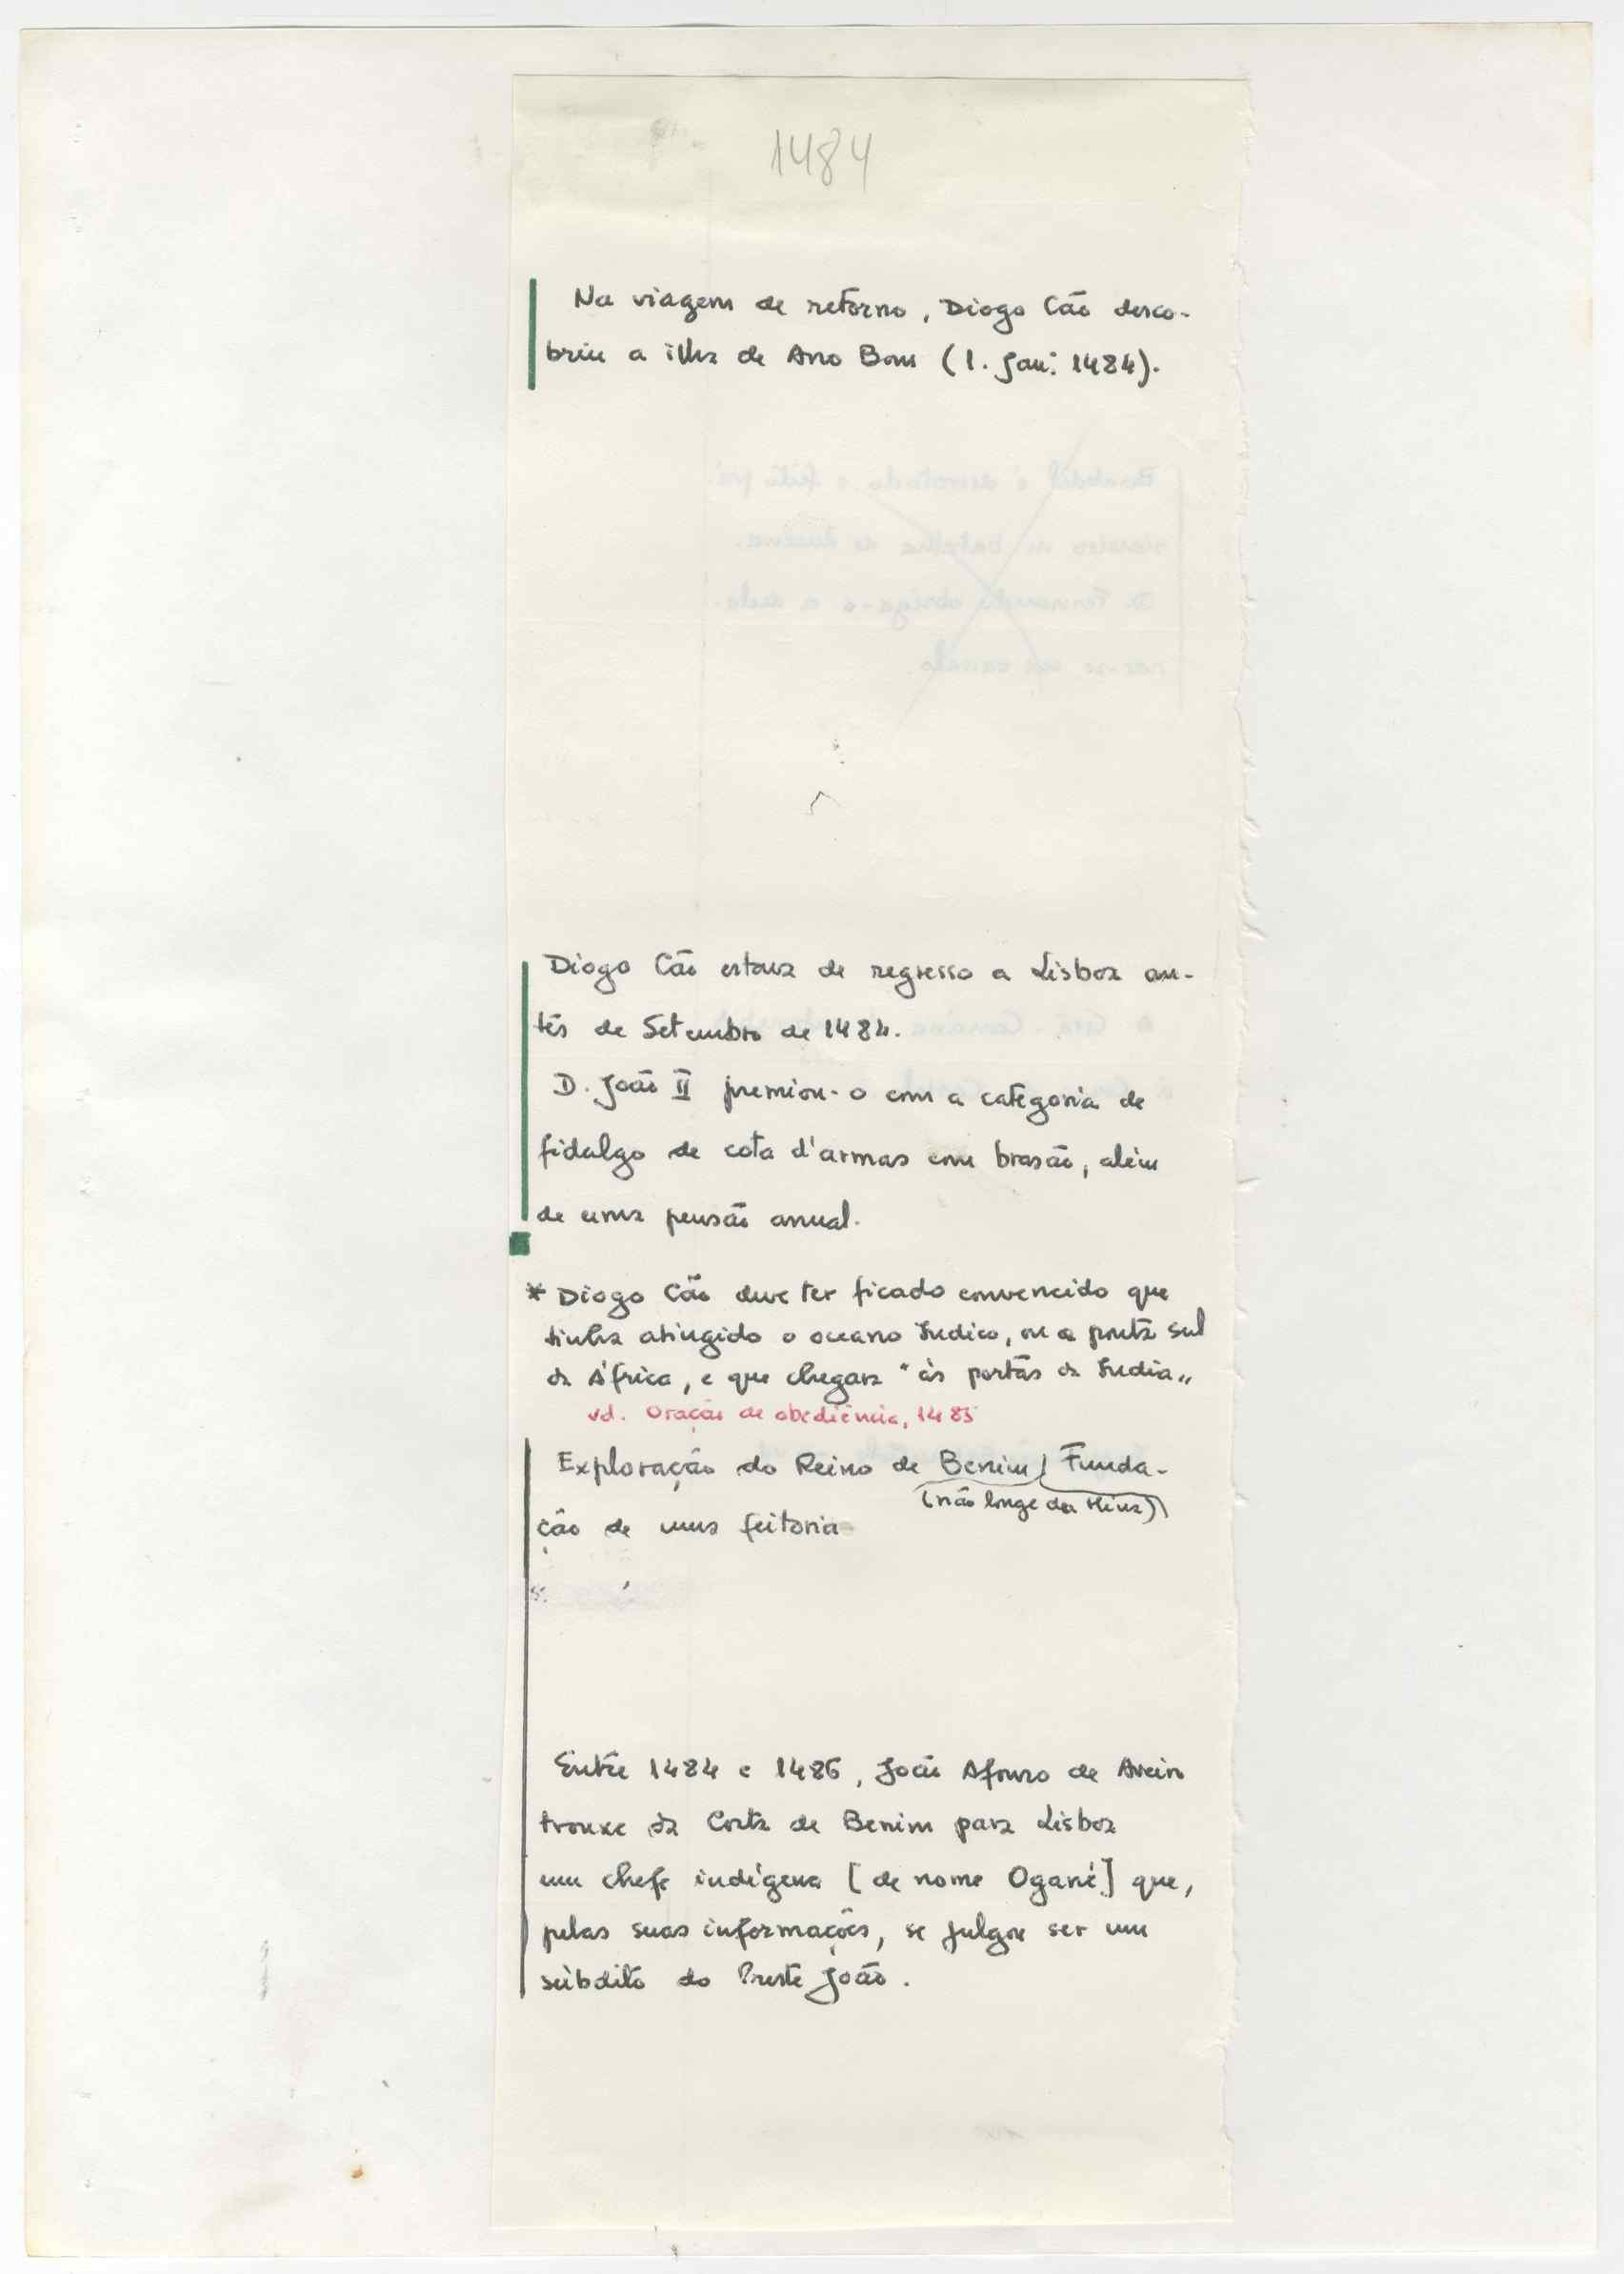 1484
Na viagem de retorno, Diogo Cão desco-
briu a ilha de Ano Bom (1. Jan: 1484).
Diogo Cão estava de regresso a Lisboa an-
tes de Setembro de 1484.
D. João II premiou-o com a categoria de
fidalgo de cota d'armas com brasão, além
de uma pensão anual.
* Diogo Cão deve ter ficado convencido que
tinha atingido o oceano Índico, ou a ponta sul
da África, e que chegara "às portas da Índia"
vd. Oração de obediência, 1485
Exploração do Reino de Benim / Funda-
(não longe da Mina)
ção de uma feitoria
Entre 1484 e 1486, João Afonso de Aveiro
trouxe da Corte de Benim para Lisboa
um chefe indígena [de nome Ogané] que,
pelas suas informações, se julgou ser um
súbdito do Preste João.